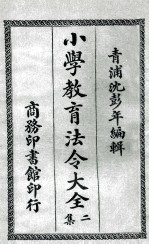 青浦沈彭年編輯
小學教育法令大全二集
商務印書館印行